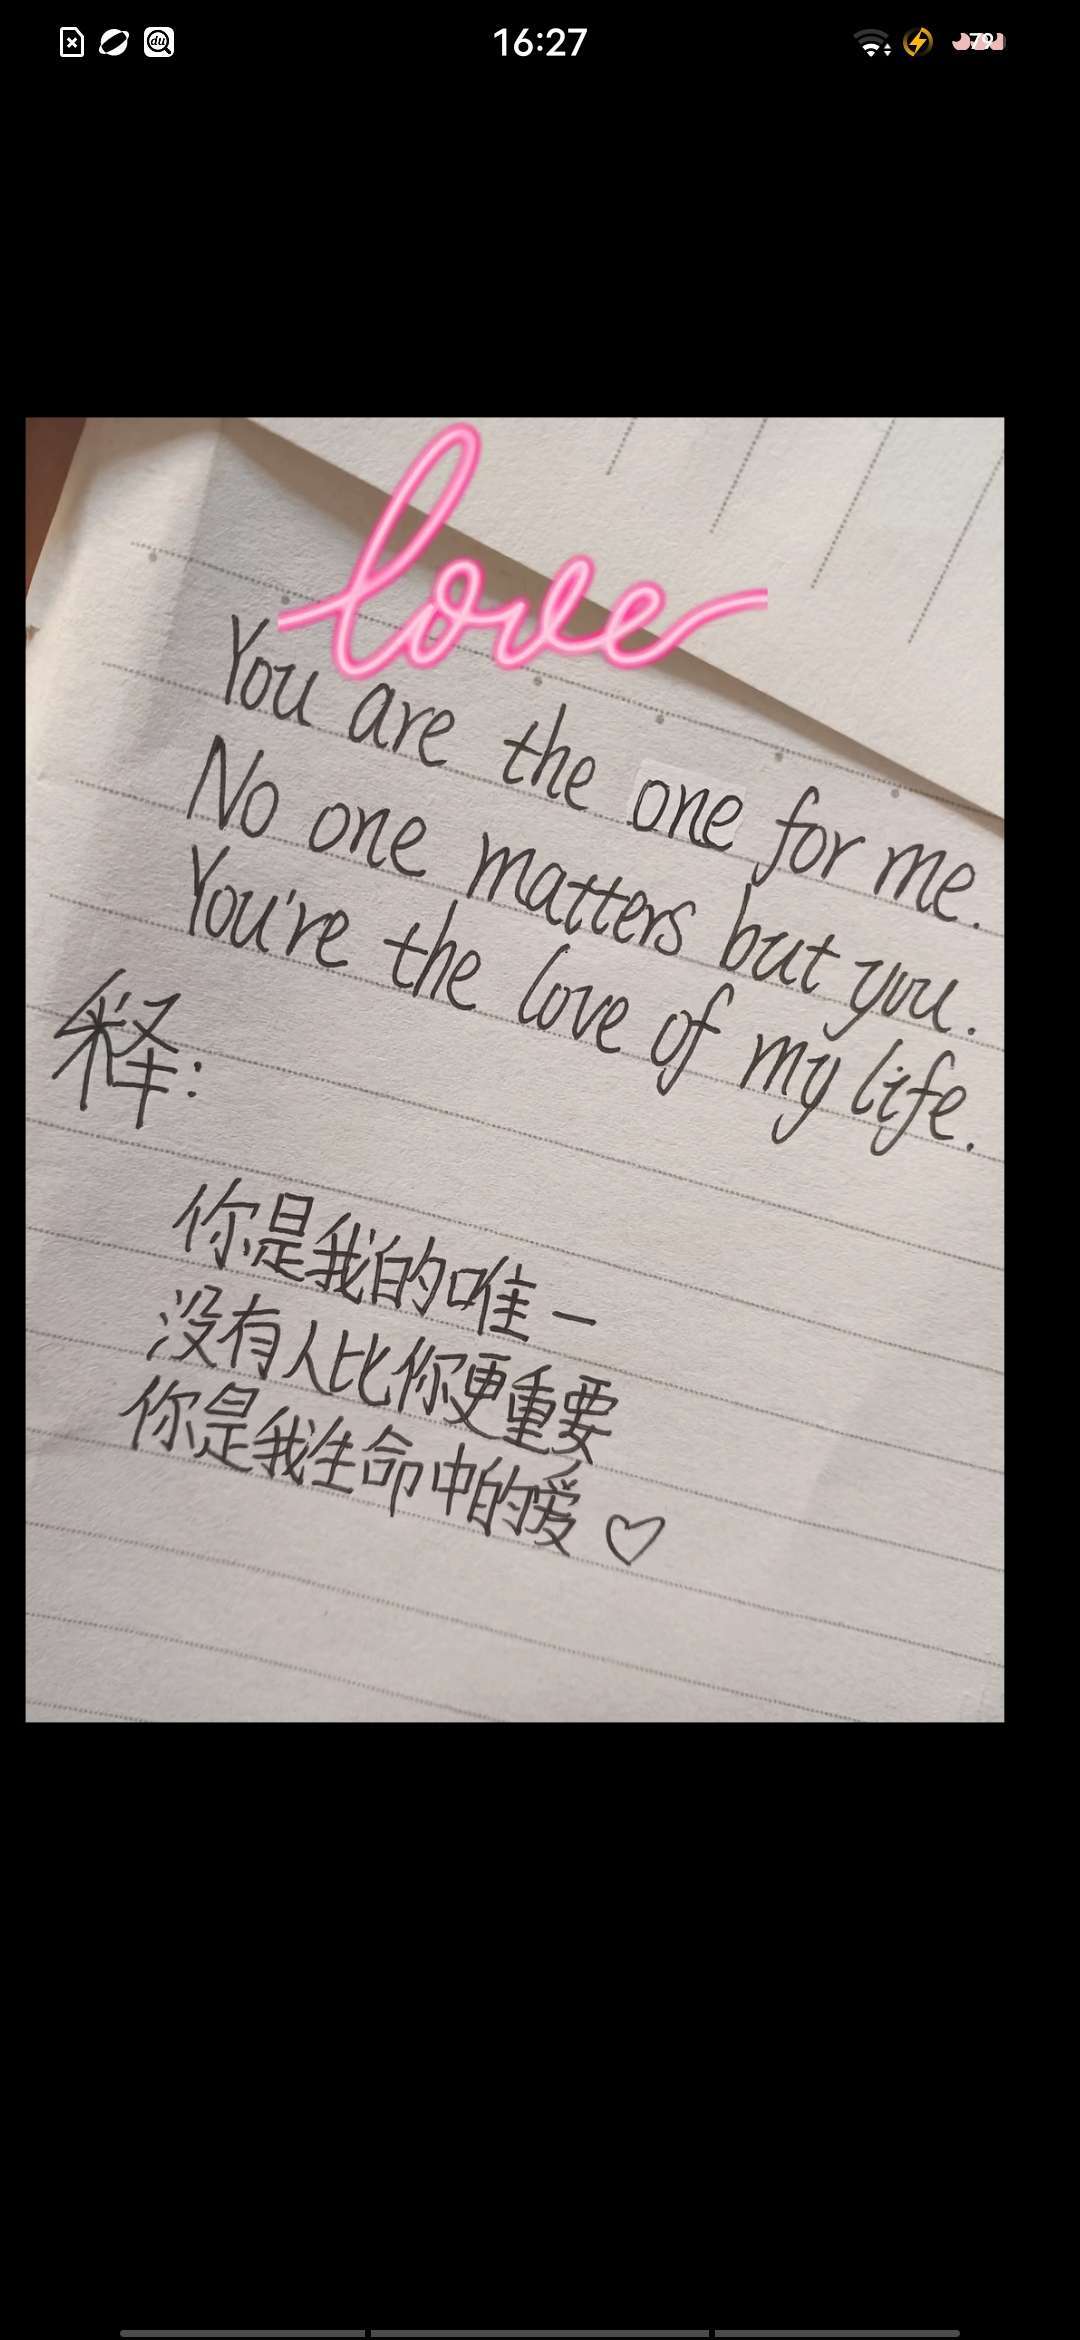 16:27
79
love
You are the one for me.
No one matters but you.
You're the love of my life.
释:
你是我的唯一
没有人比你更重要
你是我生命中的爱♡